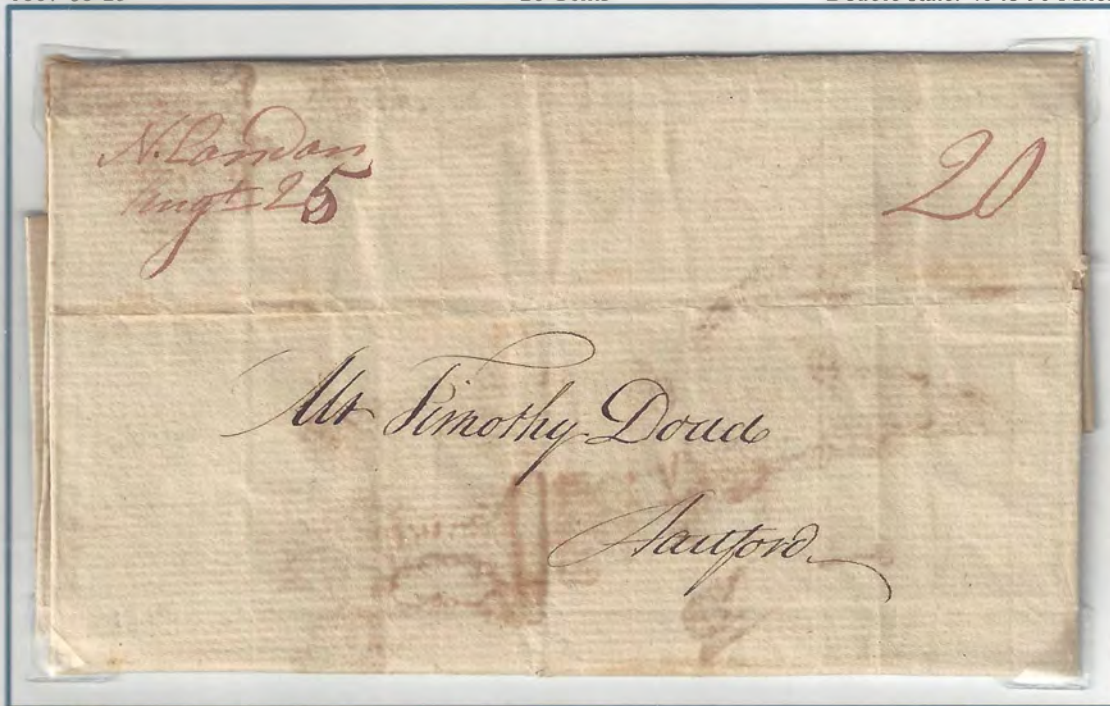 N. Landan
Augt 25
20
Mr Timothy Doud
Hartford